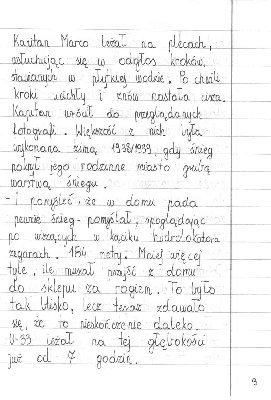 Kapitan Marco leżał na plecach,
wsłuchując się w odgłos kroków,
stawianych w płytkiej wodzie. Po chwili
kroki ucichły i znów nastała cisza.
Kapitan wrócił do przeglądanych
fotografii. Większość z nich była
wykonana zimą, 1938/1939, gdy śnieg
pokrył jego rodzinne miasto grubą
warstwą śniegu.
- I pomyśleć, że w domu pada
pewnie śnieg - pomyślał, spoglądając
po wiszących w kąciku hydrolokatora
zegarach. 164 metry. Mniej więcej
tyle, ile musiał przejść z domu
do sklepu za rogiem. To było
tak blisko, lecz teraz zdawało
się, że to nieskończenie daleko.
U-33 leżał na tej głębokości
już od 7 godzin.
9